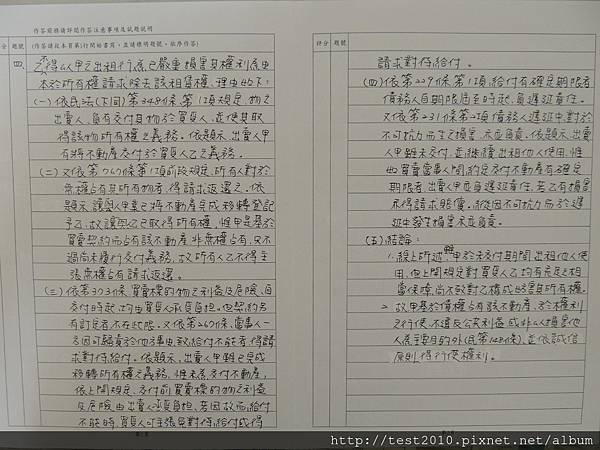 作答前務請詳閱作答注意事項及試題說明
分 題號 (作答請從本頁第1行開始書寫，並請標明題號，依序作答)
四、
乙不得以甲之出租行為已嚴重損害其權利為由
本於所有權請求除去該租賃權，理由如下：
(一)依民法(下同)第348條第1項規定，物之
出賣人，負有交付其物於買受人，並使其取
得該物所有權之義務。依題示，出賣人甲
有將不動產交付於買受人乙之義務。
(二)又依第767條第1項前段規定，所有人對於
無權占有其所有物者，得請求返還之。依
題示，讓與人甲業已將不動產完成移轉登記
予乙，故讓與乙已取得所有權，惟甲是基於
買賣契約而占有該不動產，非無權占有，只不
過尚未履行交付義務，故所有人乙不得主
張無權占有請求返還。
(三)依第373條，買賣標的物之利益及危險，自
交付時起，均由買受人承受負擔，但契約另
有訂定者，不在此限。又依第267條，當事人一
方因可歸責於他方事由，致給付不能者，得請
求對待給付。依題示，出賣人甲雖已完成
移轉所有權之義務，惟未為交付不動產，
依上開規定，交付前買賣標的物之利益
及危險由出賣人承受負擔，若因故而給付
不能時，買受人可主張免對待給付或得
評分 題號
請求對待給付。
(四)依第229條第1項，給付有確定期限者，
債務人自期限屆至時起，負遲延責任。
又依第231條第2項，債務人遲延中，對於
不可抗力而生之損害，亦應負責。依題示，出賣
人甲雖未交付，並繼續出租他人使用，惟
如買賣當事人間約定交付不動產有確定
期限者，出賣人甲應負遲延責任，若乙有損害
示得請求賠償，縱使因不可抗力而於遲
延中發生損害亦應負責。
(五)結論：
1. 綜上所述，雖甲於未交付期間出租他人使
用，但上開規定對買受人乙均有充足之相
當保障，尚不致對乙構成妨害其所有權。
2. 故甲基於債權占有該不動產，於權利
之行使，不違反公共利益或非以損害他
人為主要目的外(民第148條)，並依誠信
原則得行使權利。
http://test2010.pixnet.net/album